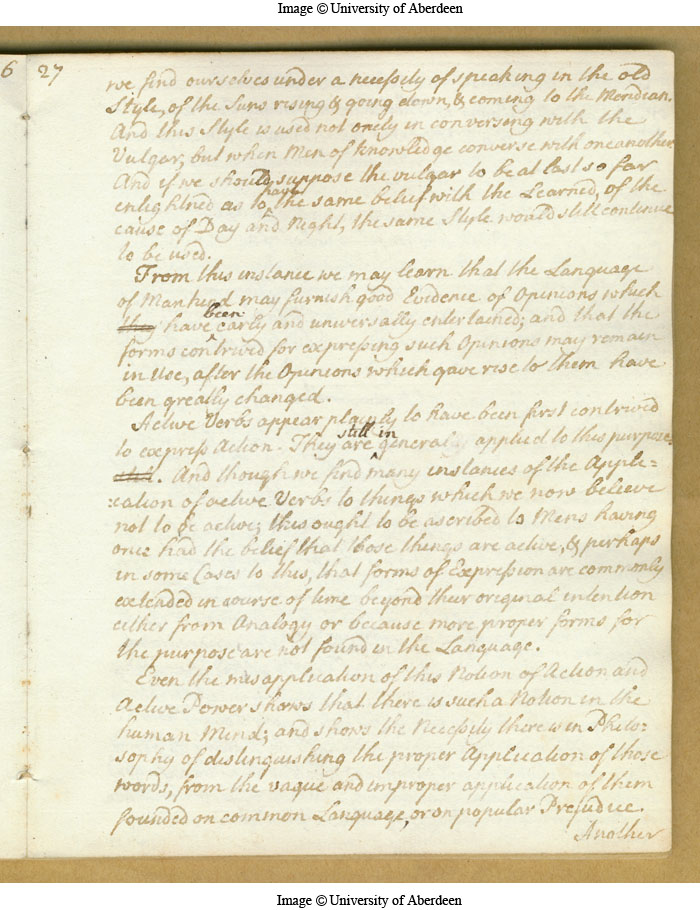 Image © University of Aberdeen
6 27
we find ourselves under a necessity of speaking in the old
Style, of the Suns rising & going down, & coming to the Meridian.
And this Style is used not onely in conversing with the
Vulgar, but when Men of knowledge converse with one another
And if we should suppose the vulgar to be at last so far
have
enlightned as to the same belief with the Learned, of the
cause of Day and Night, the same Style would still continue
to be used.
From this instance we may learn that the Language
of Mankind may furnish good Evidence of Opinions which
been
they have early and universally entertained; and that the
forms contrived for expressing such Opinions may remain
in Use, after the Opinions which gave rise to them have
been greatly changed.
Active Verbs appear plainly to have been first contrived
still in
to express Action. They are general applied to this purpose
still. And though we find many instances of the Appli=
=cation of active Verbs to things which we now believe
not to be active; this ought to be ascribed to Mens having
once had the belief that those things are active, & perhaps
in some Cases to this, that forms of Expression are commonly
extended in course of time beyond their original intention
either from Analogy or because more proper forms for
the purpose are not found in the Language.
Even the misapplication of this Notion of Action and
Active Power shows that there is such a Notion in the
human Mind; and shows the Necessity there is in Philo-
sophy of distinguishing the proper Application of those
words, from the vague and improper application of them
founded on common Language, or on popular Prejudice.
Another
Image © University of Aberdeen